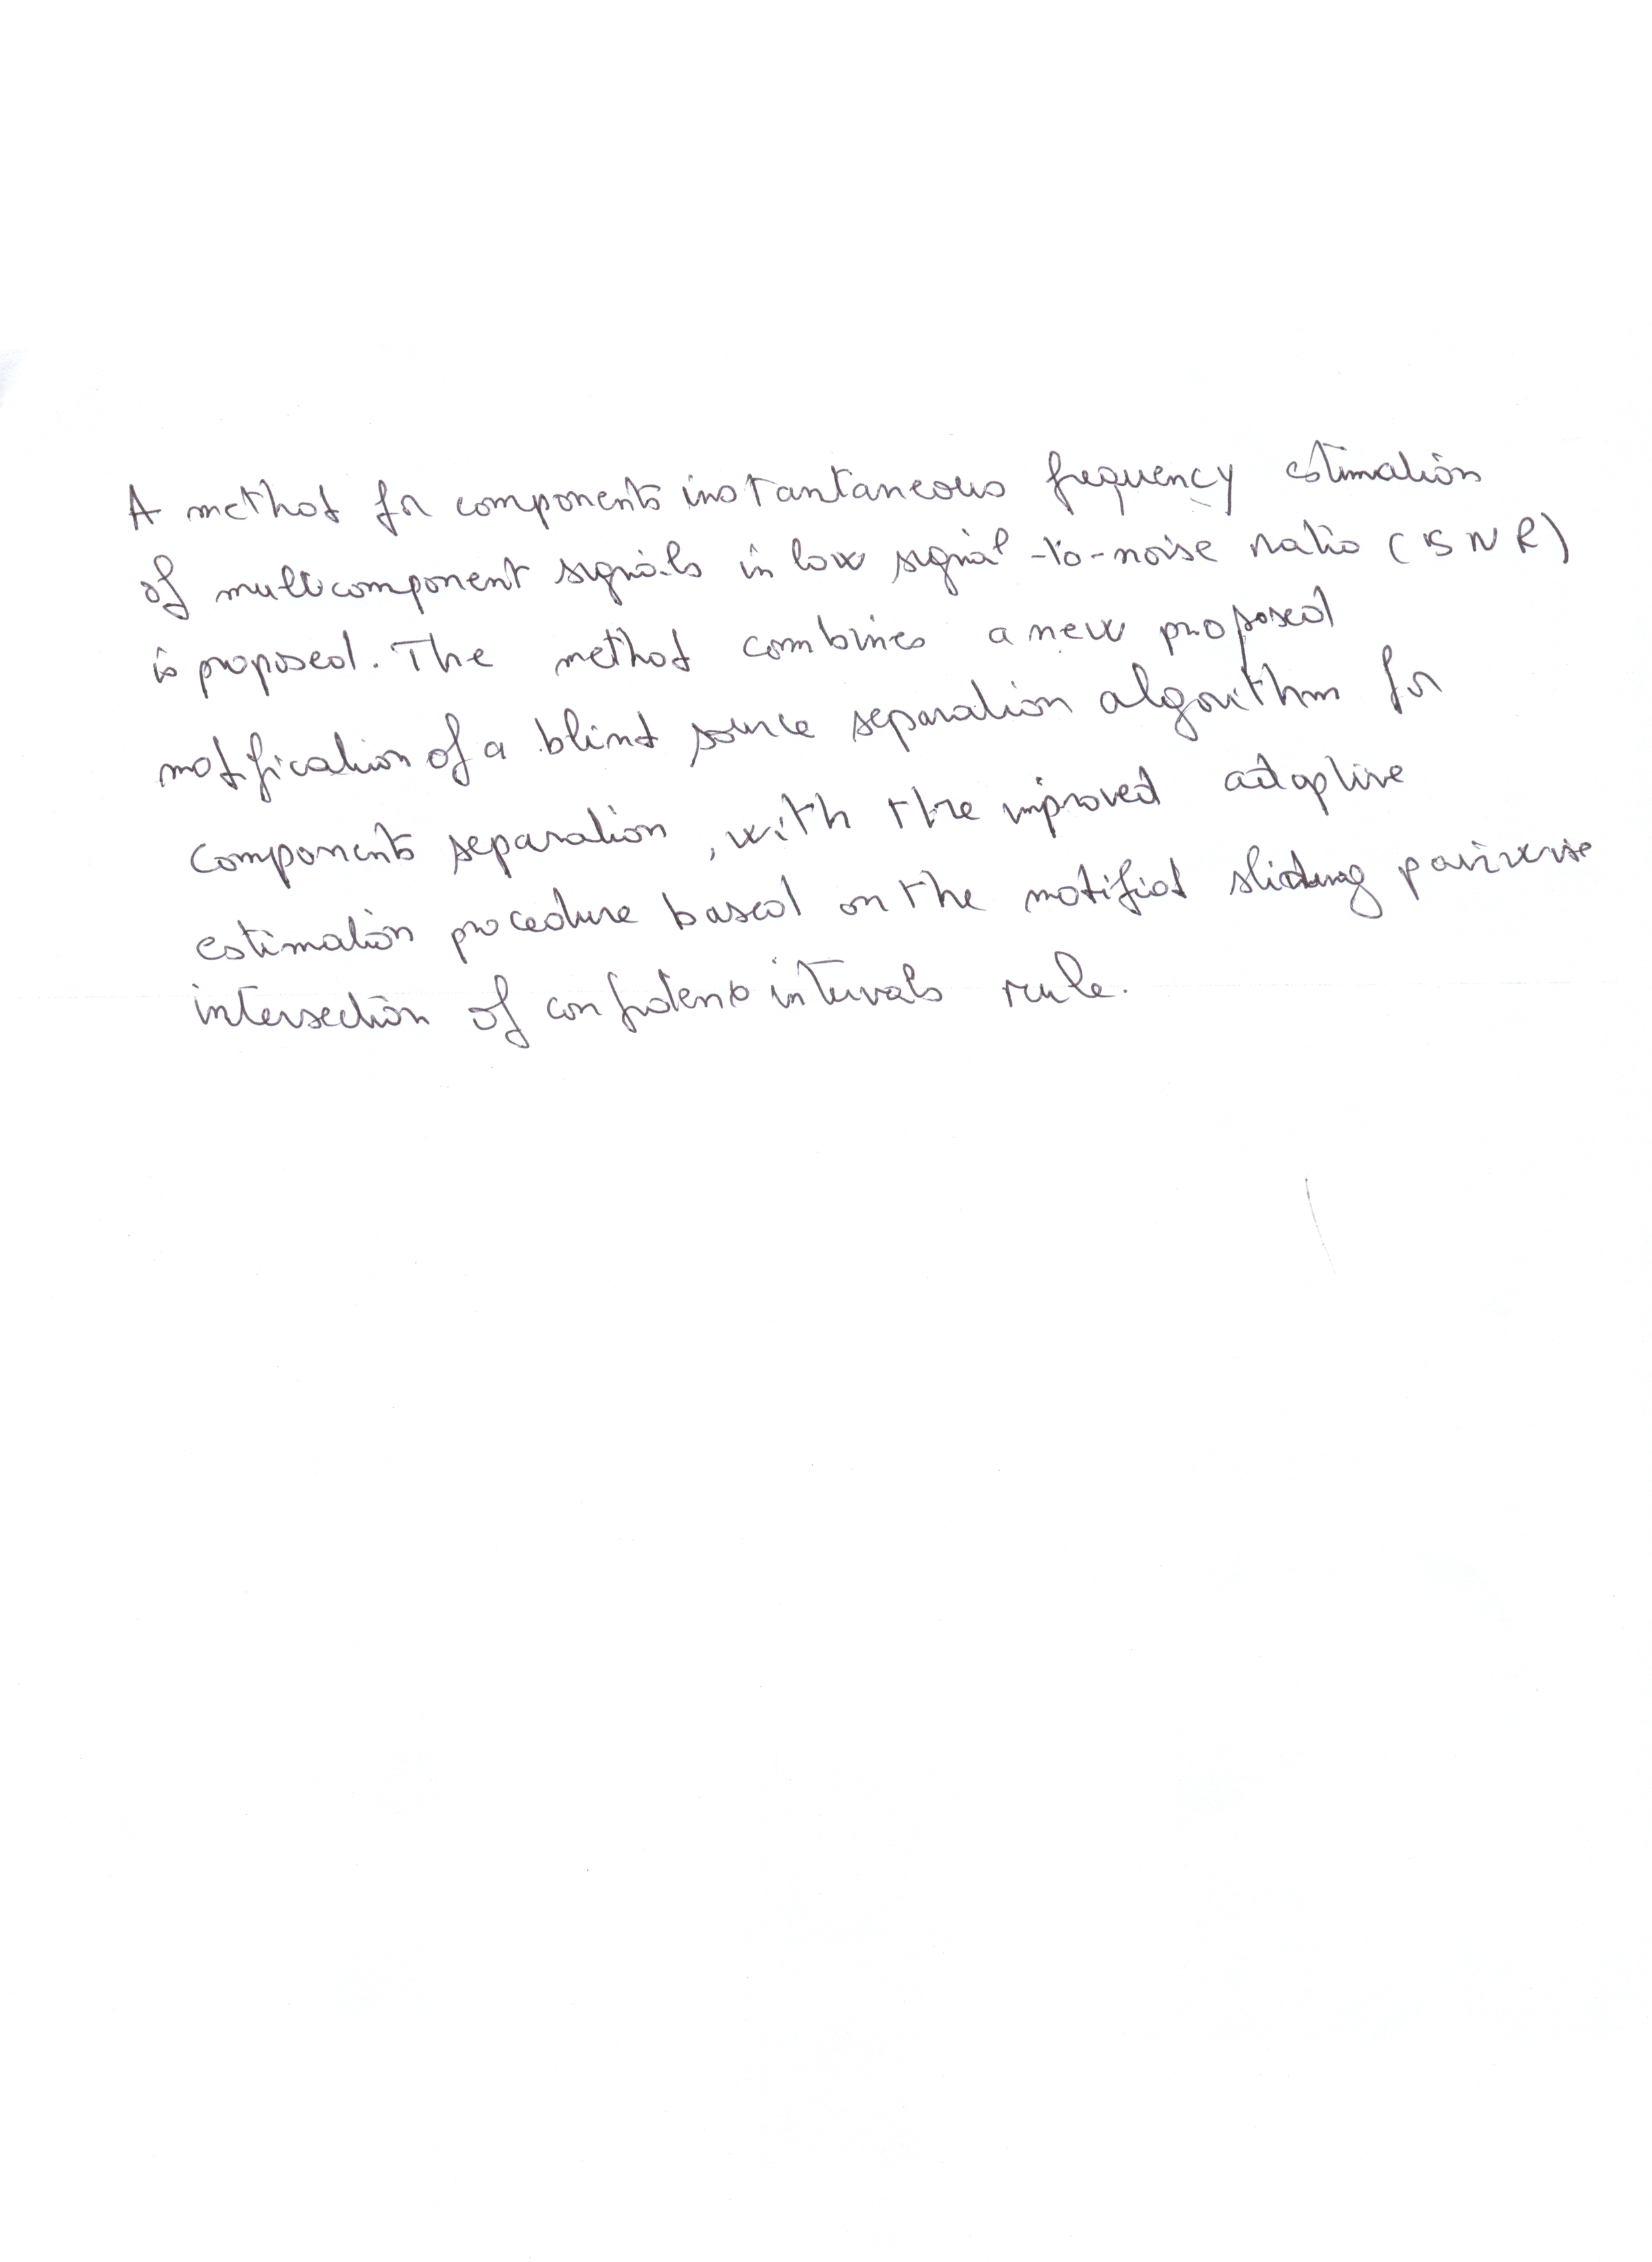 A method for components instantaneous frequency estimation
of multicomponent signals in low signal-to-noise ratio (SNR)
is proposed. The method combines a new proposed
modification of a blind source separation algorithm for
components separation, with the improved adaptive
estimation procedure based on the modified sliding pairwise
intersection of confidence intervals rule.